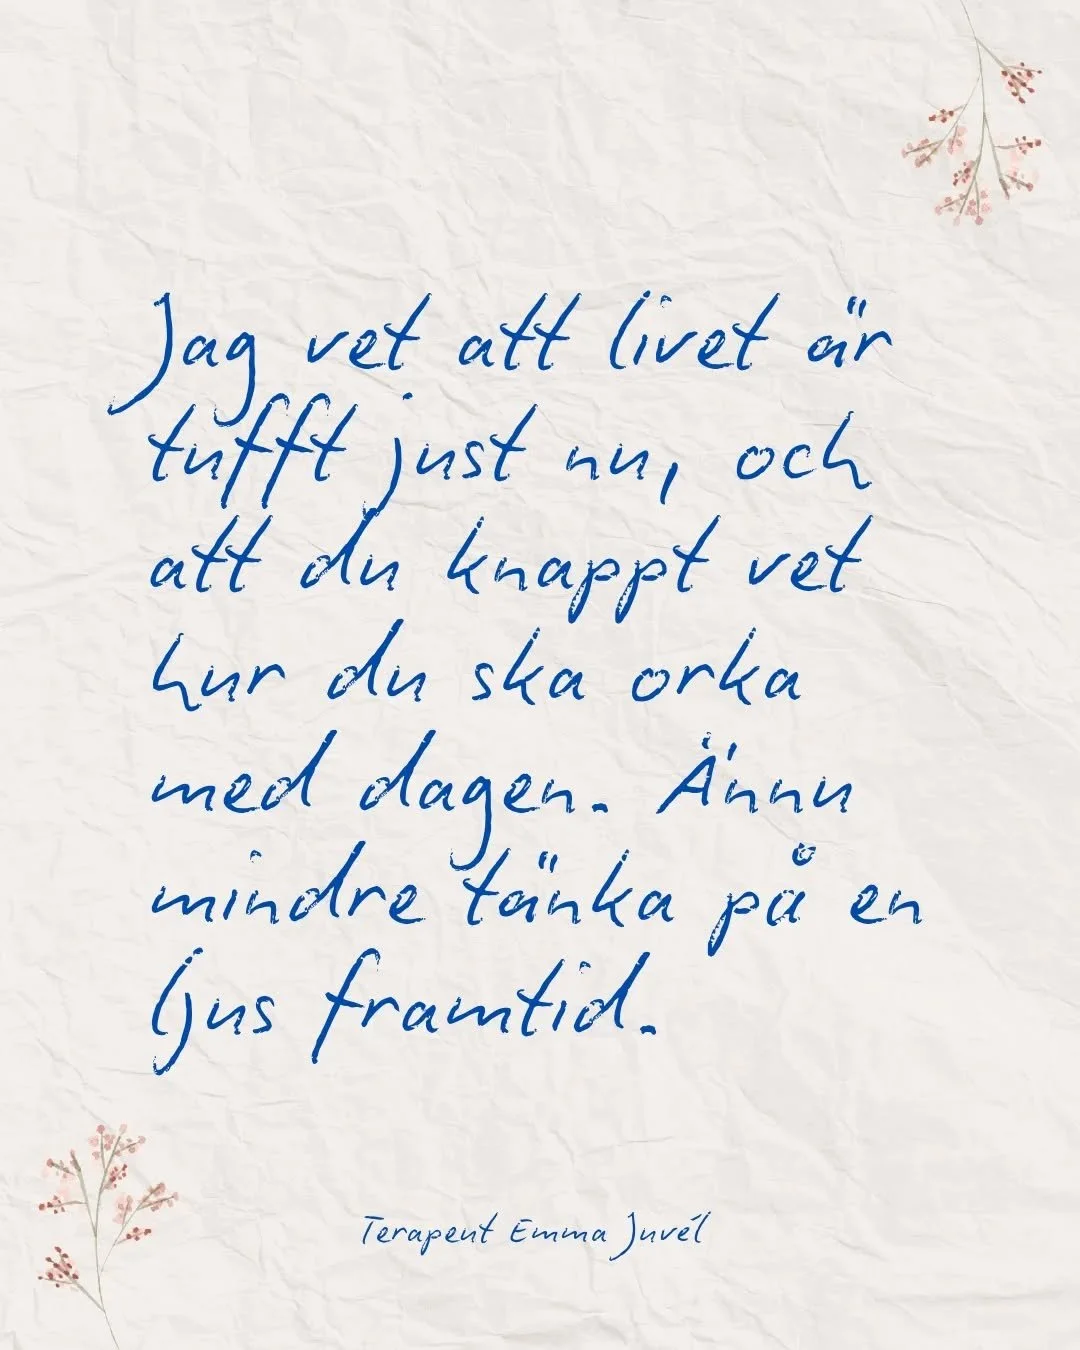 Jag vet att livet är
tufft just nu, och
att du knappt vet
hur du ska orka
med dagen. Ännu
mindre tänka på en
ljus framtid.
Terapeut Emma Juvél